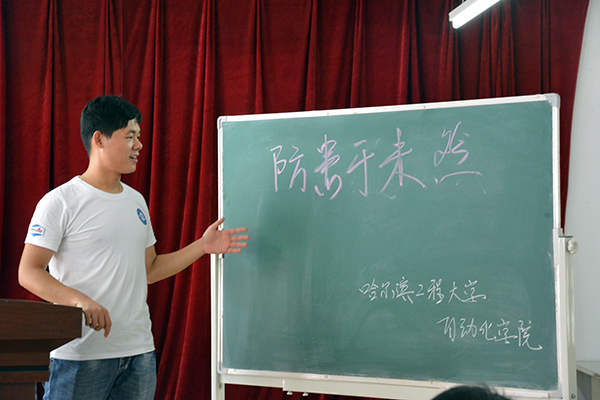 防患于未然
哈尔滨工程大学
自动化学院